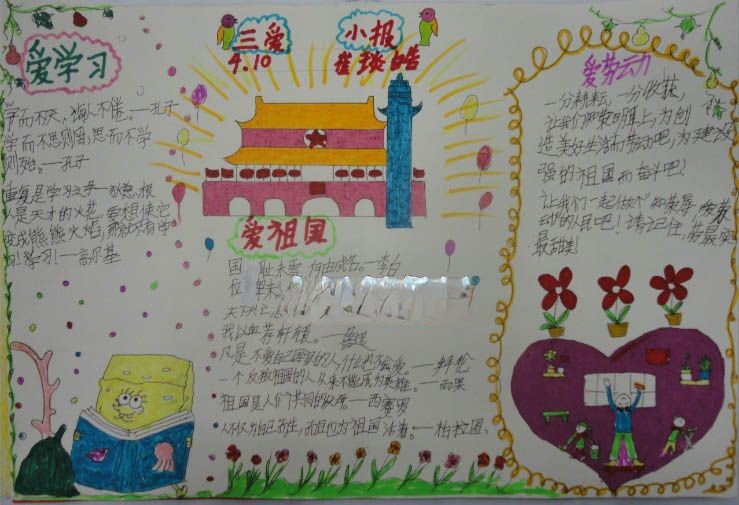 三爱 小报
4.10
爱学习
学而不厌,诲人不倦。—孔子
学而不思则罔,思而不学
则殆。—孔子
重复是学习之母—狄慈根
是天才的火花,要想使它
变成熊熊火焰,那就只有学
习!学习!—高尔基
爱祖国
国耻未雪,何由成名。—李白
位卑未
天下兴亡
我以血荐轩辕。—鲁迅
凡是不爱自己国家的人,什么也不会爱。—拜伦
一个反叛祖国的人,从来不能成为英雄。—雨果
祖国是人们共同的父母。—西赛罗
人不仅为自己而生,而且也为祖国活着。—柏拉图
爱劳动
一分耕耘,一分收获,
让我们 为创
造美好生活而劳动吧,为建设
强的祖国而奋斗吧!
让我们一起做个
动的人民吧!请记住,劳
最甜美!